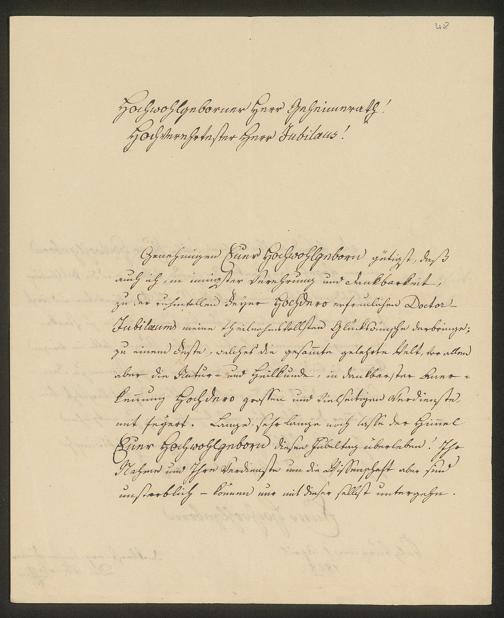 48
Hochwohlgeborner Herr Geheimerath!
Hochverehrtester Herr Jubilaus!
Genehmigen Euer Hochwohlgeborn gütigst, daß
auch ich, in innigster Verehrung und Dankbarkeit,
zu der ruhmvollen Feyer Hochdero erfreulichen Doctor-
Jubilaeums meine theilnahmvollsten Glückwünsche darbringe;
zu einem Feste, welches die gesammte gelehrte Welt, vor allem
aber die Natur- und Heilkunde, in dankbarster Aner-
kennung Hochdero grossen und vielseitigen Verdienste
mit feyert. Lange, sehr lange noch lasse der Himmel
Euer Hochwohlgeborn diesen Jubeltag überleben! Ihr
Nahme und Ihre Verdienste um die Wissenschaft aber sind
unsterblich – können nur mit dieser selbst untergehn.